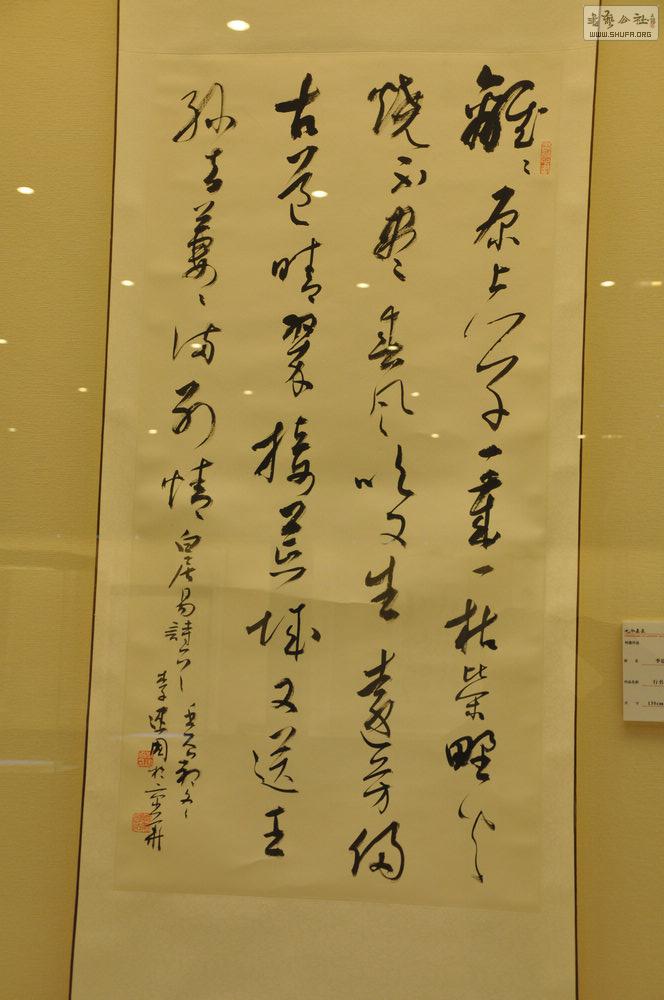 離々原上草一歲一枯榮野火
燒不盡春風吹又生遠芳侵
古道晴翠接荒城又送王
孫去萋々滿別情
白居易詩
李建國於京華
書藝公社
WWW.SHUFA.ORG